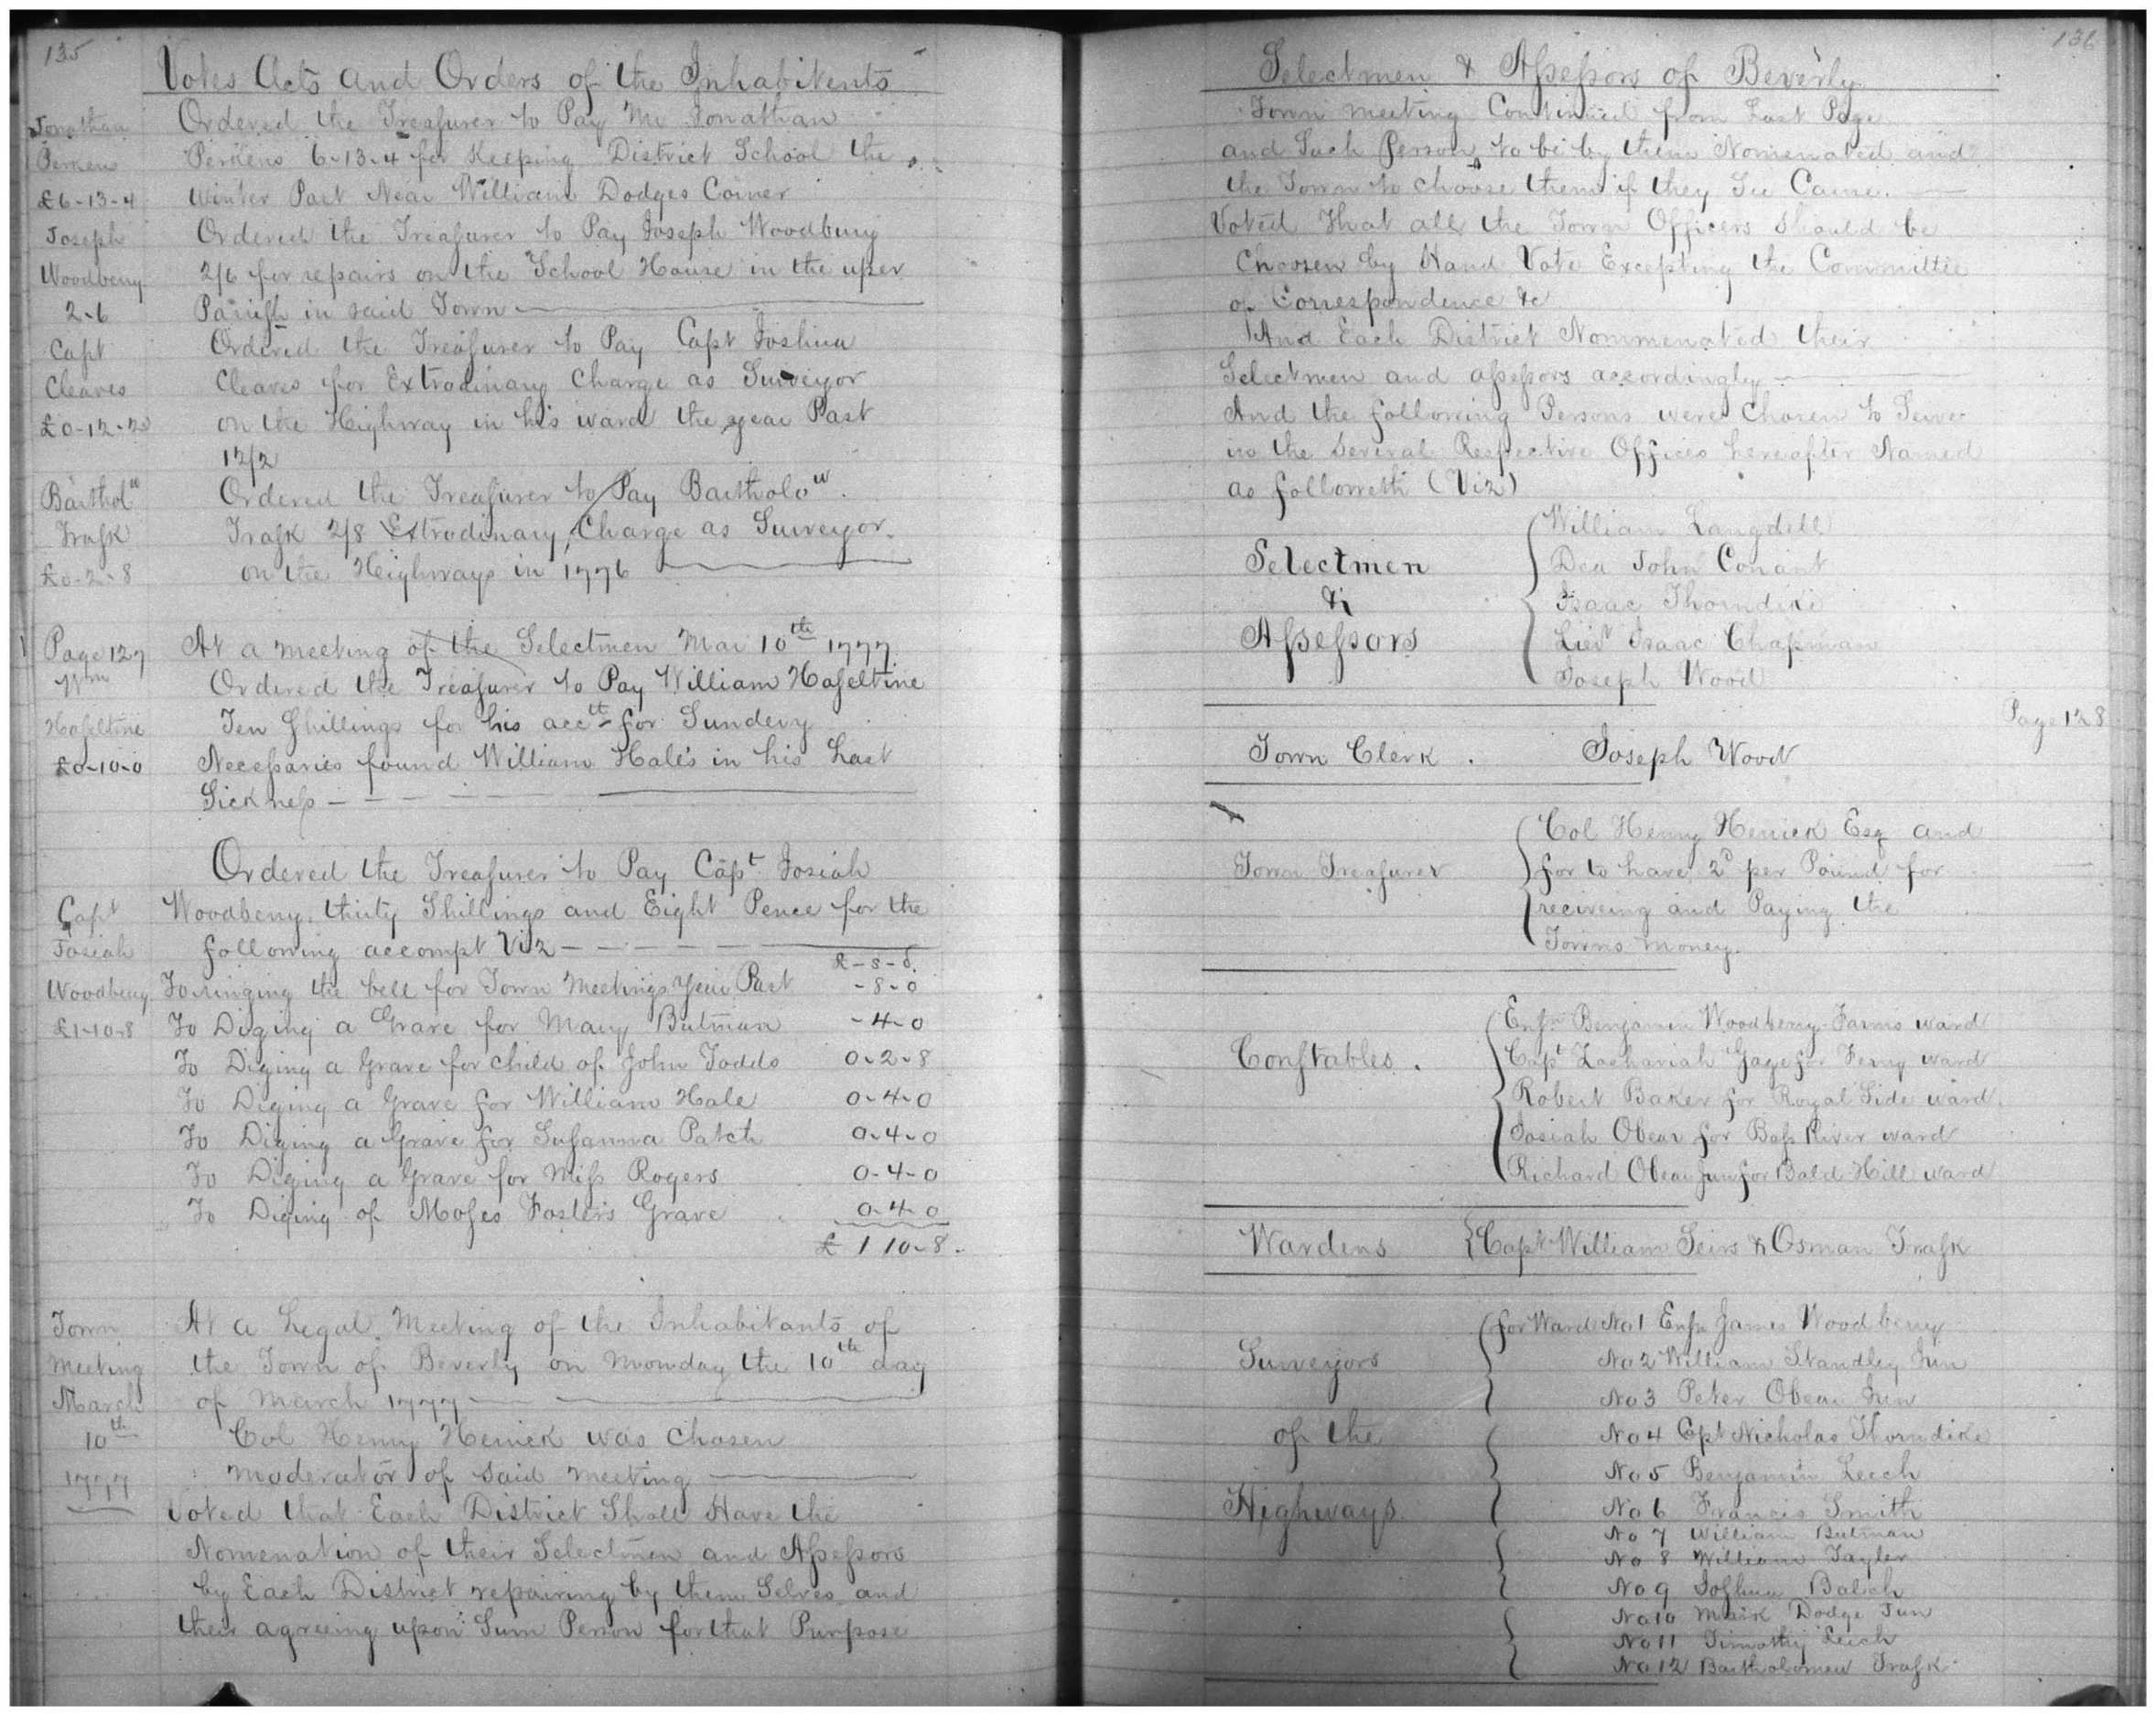 135
Votes Acts and Orders of the Inhabitents
Jonathan
Perkens
£6-13-4
Ordered the Treaſurer to Pay Mr Jonathan
Perkens 6-13-4 for Keeping District School the
Winter Part Near William Dodges Corner
Joseph
Woodberry
2-6
Ordered the Treaſurer to Pay Joseph Woodbury
2/6 for repairs on the School House in the uper
Parish in said Town
Capt
Cleaves
£0-12-2
Ordered the Treaſurer to Pay Capt Joshua
Cleaves for Extrodinary Charge as Surveyor
on the Highway in his ward the year Past
12/2
Barthol w
Traſk
£0-2-8
Ordered the Treaſurer to Pay Bartholo w
Traſk 2/8 Extrodinary Charge as Surveyor
on the Heighways in 1776
Page 127
Wm
Haſeltine
£0-10-0
At a meeting of the Selectmen Mar 10th 1777
Ordered the Treaſurer to Pay William Haſeltine
Ten Shillings for his acctt for Sundery
Neceſsaries found William Hale's in his Last
Sickneſs
Capt
Josiah
Woodberry
£1-10-8
Ordered the Treaſurer to Pay Capt Josiah
Woodberry thirty Shillings and Eight Pence for the
following accompt Viz
£-s-d
To ringing the bell for Town Meetings Year Past -8-0
To Diging a Grave for Mary Butman -4-0
To Diging a Grave for child of John Todds 0-2-8
To Diging a Grave for William Hale 0-4-0
To Diging a Grave for Suſanna Patch 0-4-0
To Diging a Grave for Miſs Rogers 0-4-0
To Diging of Moſes Fosters Grave 0-4-0
£ 1 10-8
Town
Meeting
March
10th
1777
At a Legal Meeting of the Inhabitants of
the Town of Beverly on Monday the 10th day
of March 1777
Col Henry Herrick was Chosen
moderator of said meeting
Voted that Each District Shall Have the
Nomenation of their Selectmen and Aſseſsors
by Each District repairing by them Selves and
their agreeing upon Sum Person for that Purpose
136
Selectmen & Aſseſsors of Beverly
Town meeting Continued from Last Page
and Such Person to be by them Nomenated and
the Town to choose them if they See Cause
Voted that all the Town Officers should be
Chosen by Hand Vote Excepting the Committie
of Correspondence &c
And Each District Nommenated their
Selectmen and aſseſsors accordingly
And the following Persons were Chosen to Serve
in the Several Respective Offices hereafter Named
as followeth (Viz)
Selectmen
&
Aſseſsors
William Langdell
Dea John Conant
Isaac Thorndike
Liet Isaac Chapman
Joseph Wood
Page 128
Town Clerk . Joseph Wood
Town Treaſurer
Col Henry Herrick Esq and
for to have 2d per Pound for
receiveing and Paying the
Towns money
Conſtables .
Enſn Benjamin Woodberry Farms ward
Capt Zachariah Gage for Ferry ward
Robert Baker for Royal Side ward
Josiah Obear for Baſs River ward
Richard Obear Jun for Bald Hill ward
Wardens Capt William Seirs & Osman Traſk
Surveyors
of the
Highways
for Ward No 1 Enſn James Woodberry
No 2 William Standley Jun
No 3 Peter Obear Jun
No 4 Cpt Nicholas Thorndike
No 5 Benjamin Leech
No 6 Francis Smith
No 7 William Butman
No 8 William Tayler
No 9 Joſhua Balch
No 10 Mark Dodge Jun
No 11 Timothy Leech
No 12 Bartholomew Traſk